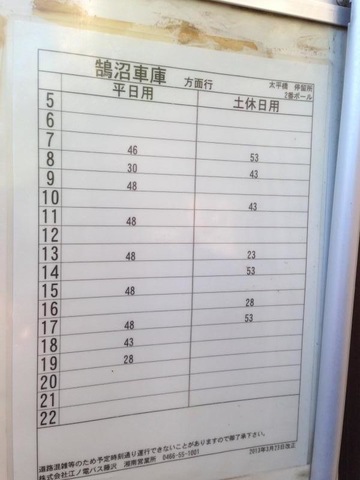 鵠沼車庫 方面行
太平橋 停留所
2番ポール
平日用 土休日用
5
6
7 46 53
8 30 43
9 48
10 43
11 48
12
13 48 23
14 53
15 48
16 28
17 48 53
18 43
19 28
20
21
22
道路混雑等のため予定時刻通り運行できないことがありますので御了承下さい。
株式会社江ノ電バス藤沢 湘南営業所 0466-55-1001 2013年3月23日改正